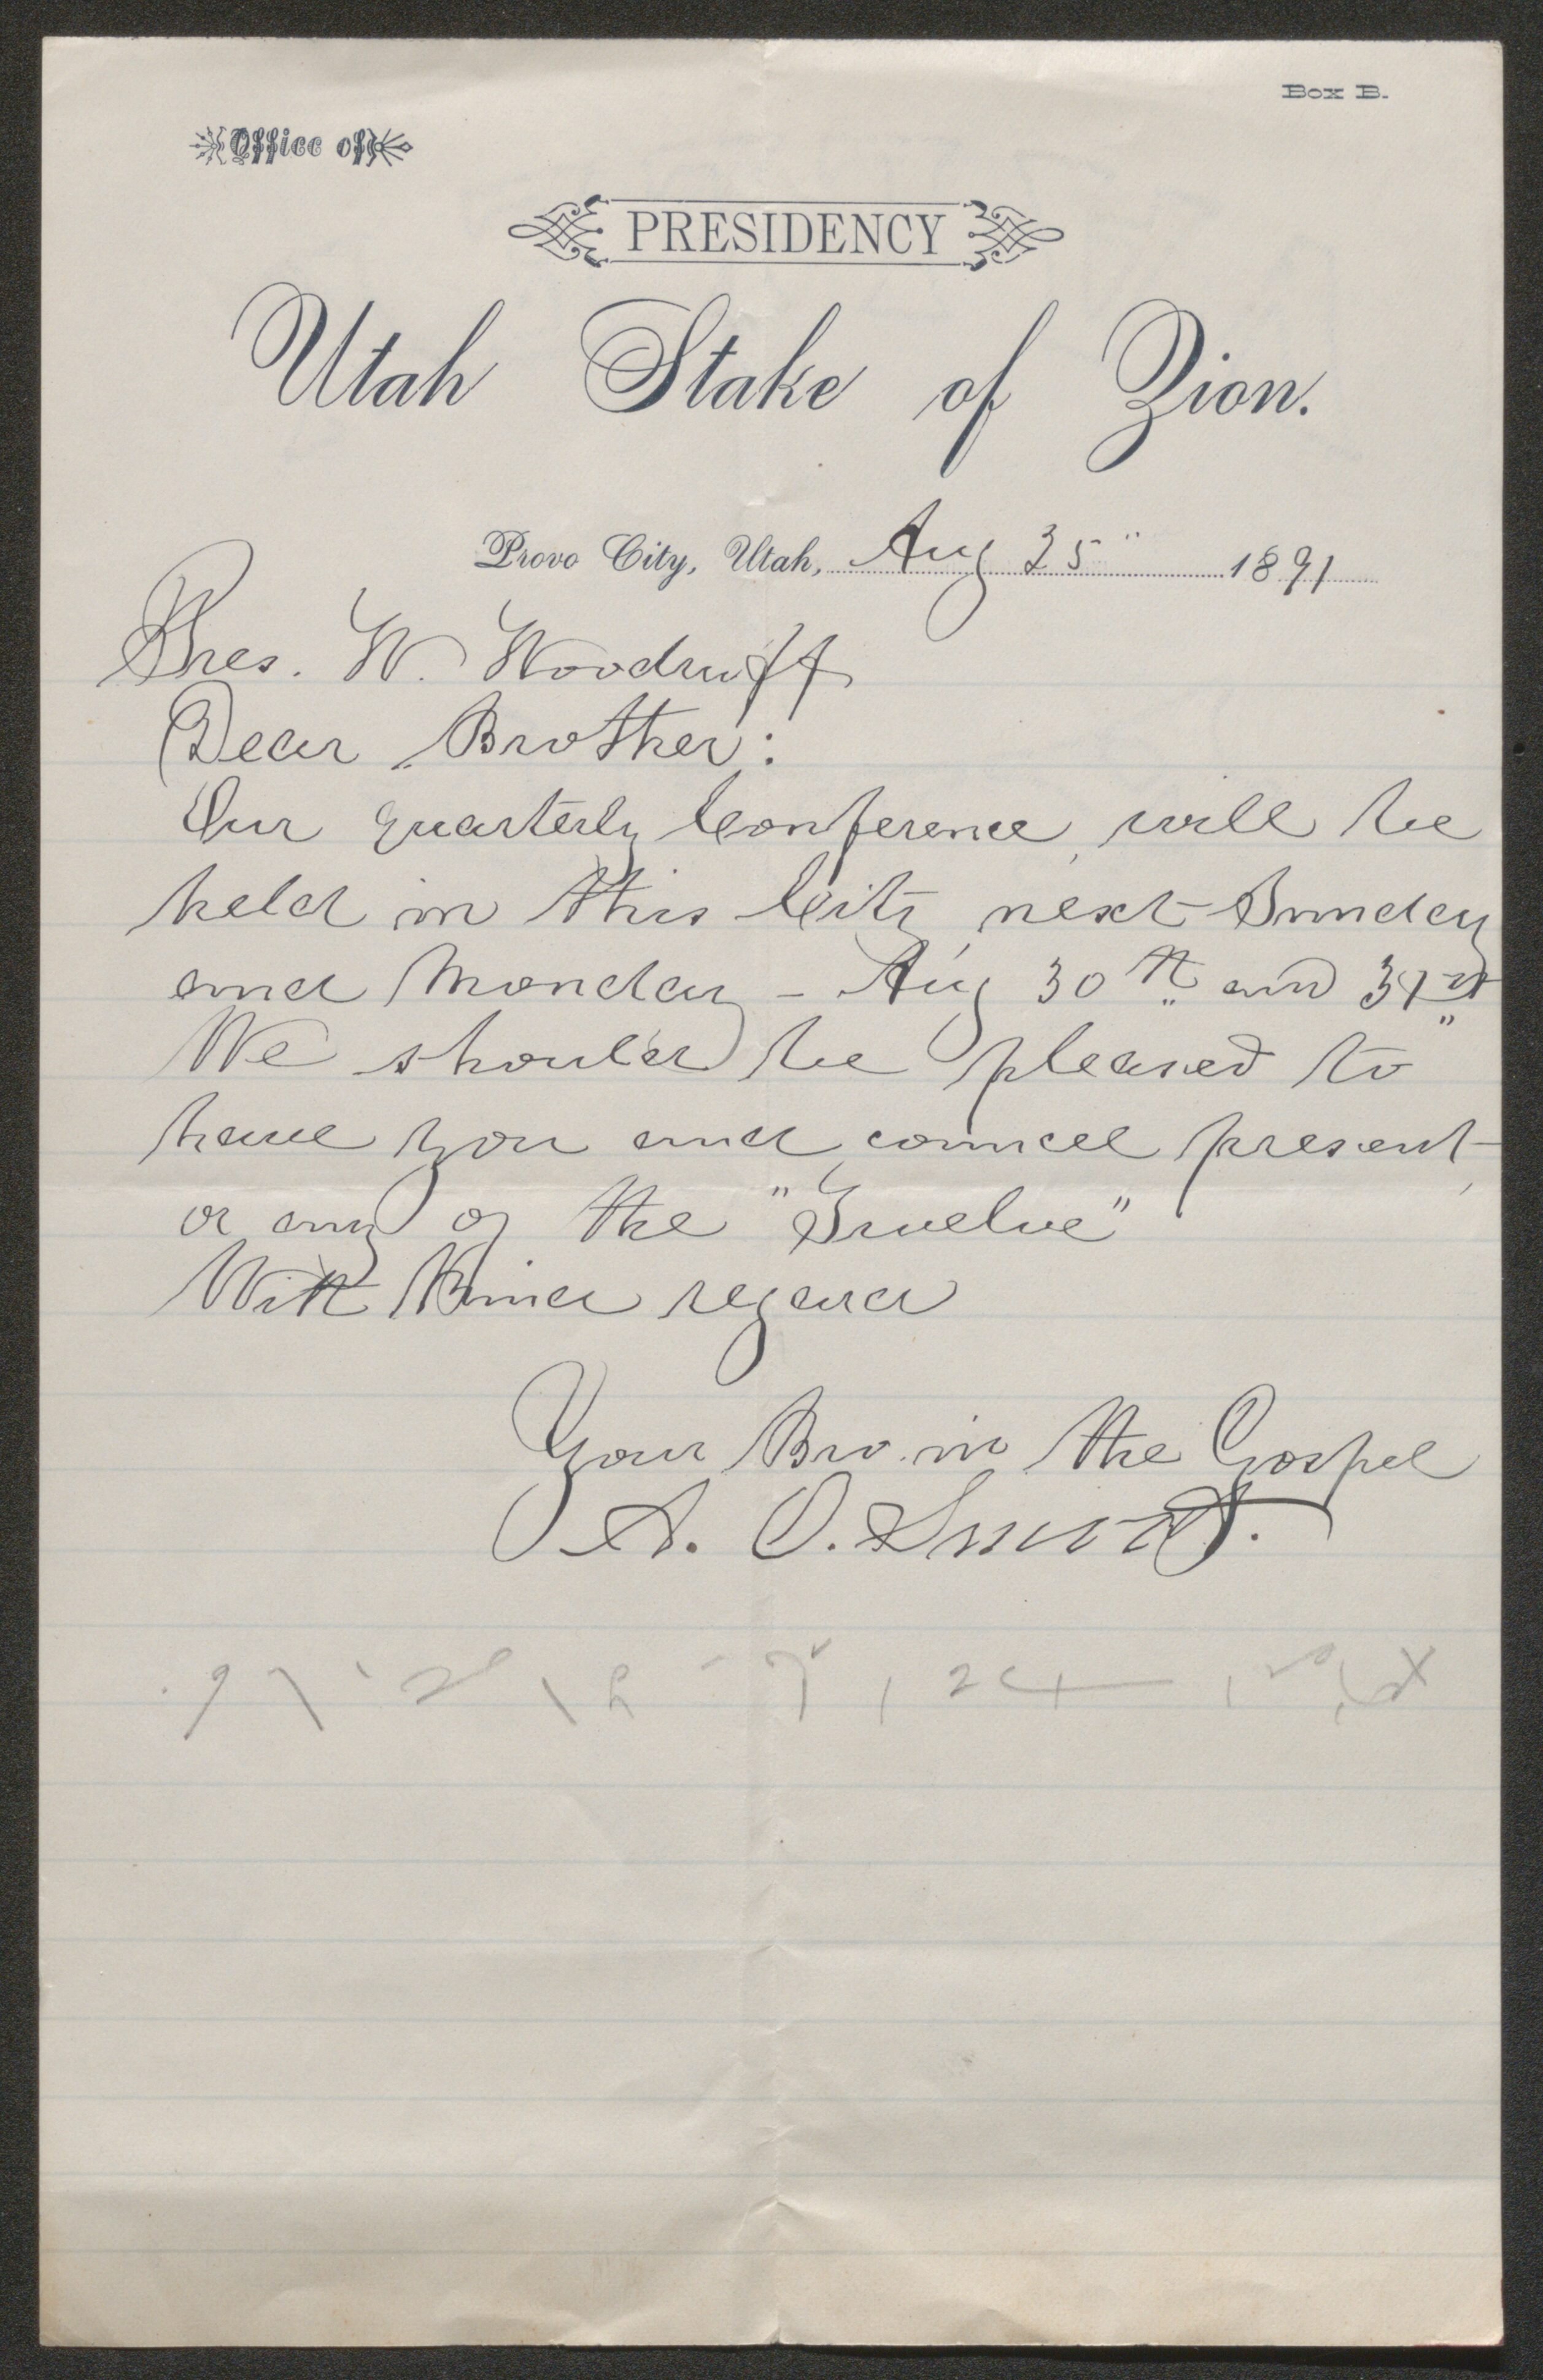 Box B.
Office of
PRESIDENCY
Utah Stake of Zion.
Provo City, Utah, Aug 25" 1891
Pres. W. Woodruff
Dear Brother:
Our quarterly Conference, will be
held in this City, next Sunday
and Monday - Aug 30th and 31st
We should be pleased to
have you and council present,
or any of the "Twelve"
With Kind regard
Your Bro. in the Gospel
A. O. Smoot.